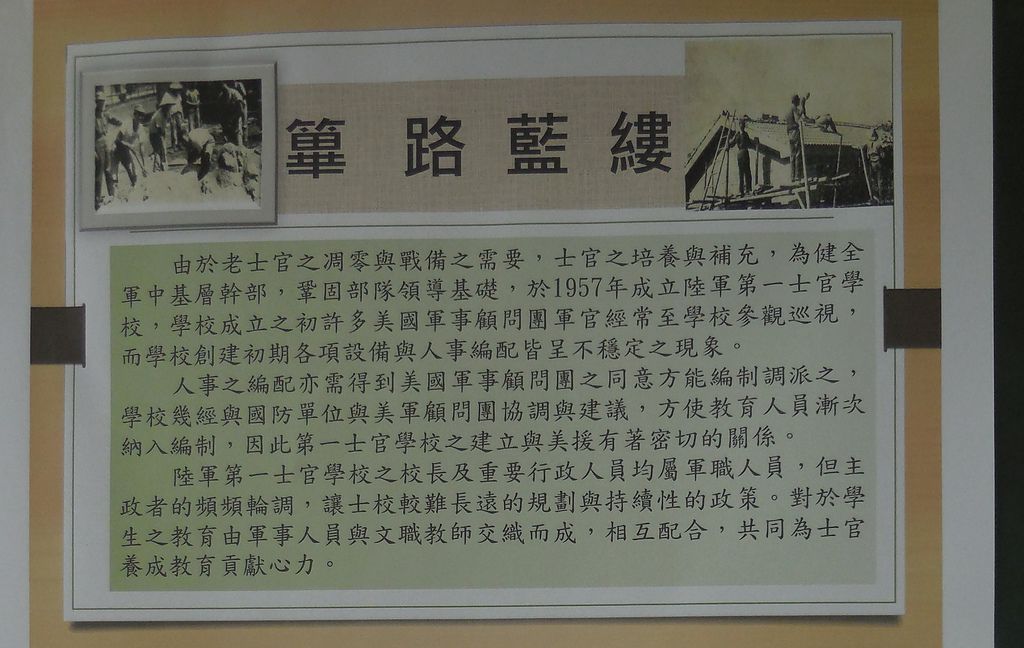 篳路藍縷
由於老士官之凋零與戰備之需要，士官之培養與補充，為健全
軍中基層幹部，鞏固部隊領導基礎，於1957年成立陸軍第一士官學
校，學校成立之初許多美國軍事顧問團軍官經常至學校參觀巡視，
而學校創建初期各項設備與人事編配皆呈不穩定之現象。
人事之編配亦需得到美國軍事顧問團之同意方能編制調派之，
學校幾經與國防單位與美軍顧問團協調與建議，方使教育人員漸次
納入編制，因此第一士官學校之建立與美援有著密切的關係。
陸軍第一士官學校之校長及重要行政人員均屬軍職人員，但主
政者的頻頻輪調，讓士校較難長遠的規劃與持續性的政策。對於學
生之教育由軍事人員與文職教師交織而成，相互配合，共同為士官
養成教育貢獻心力。